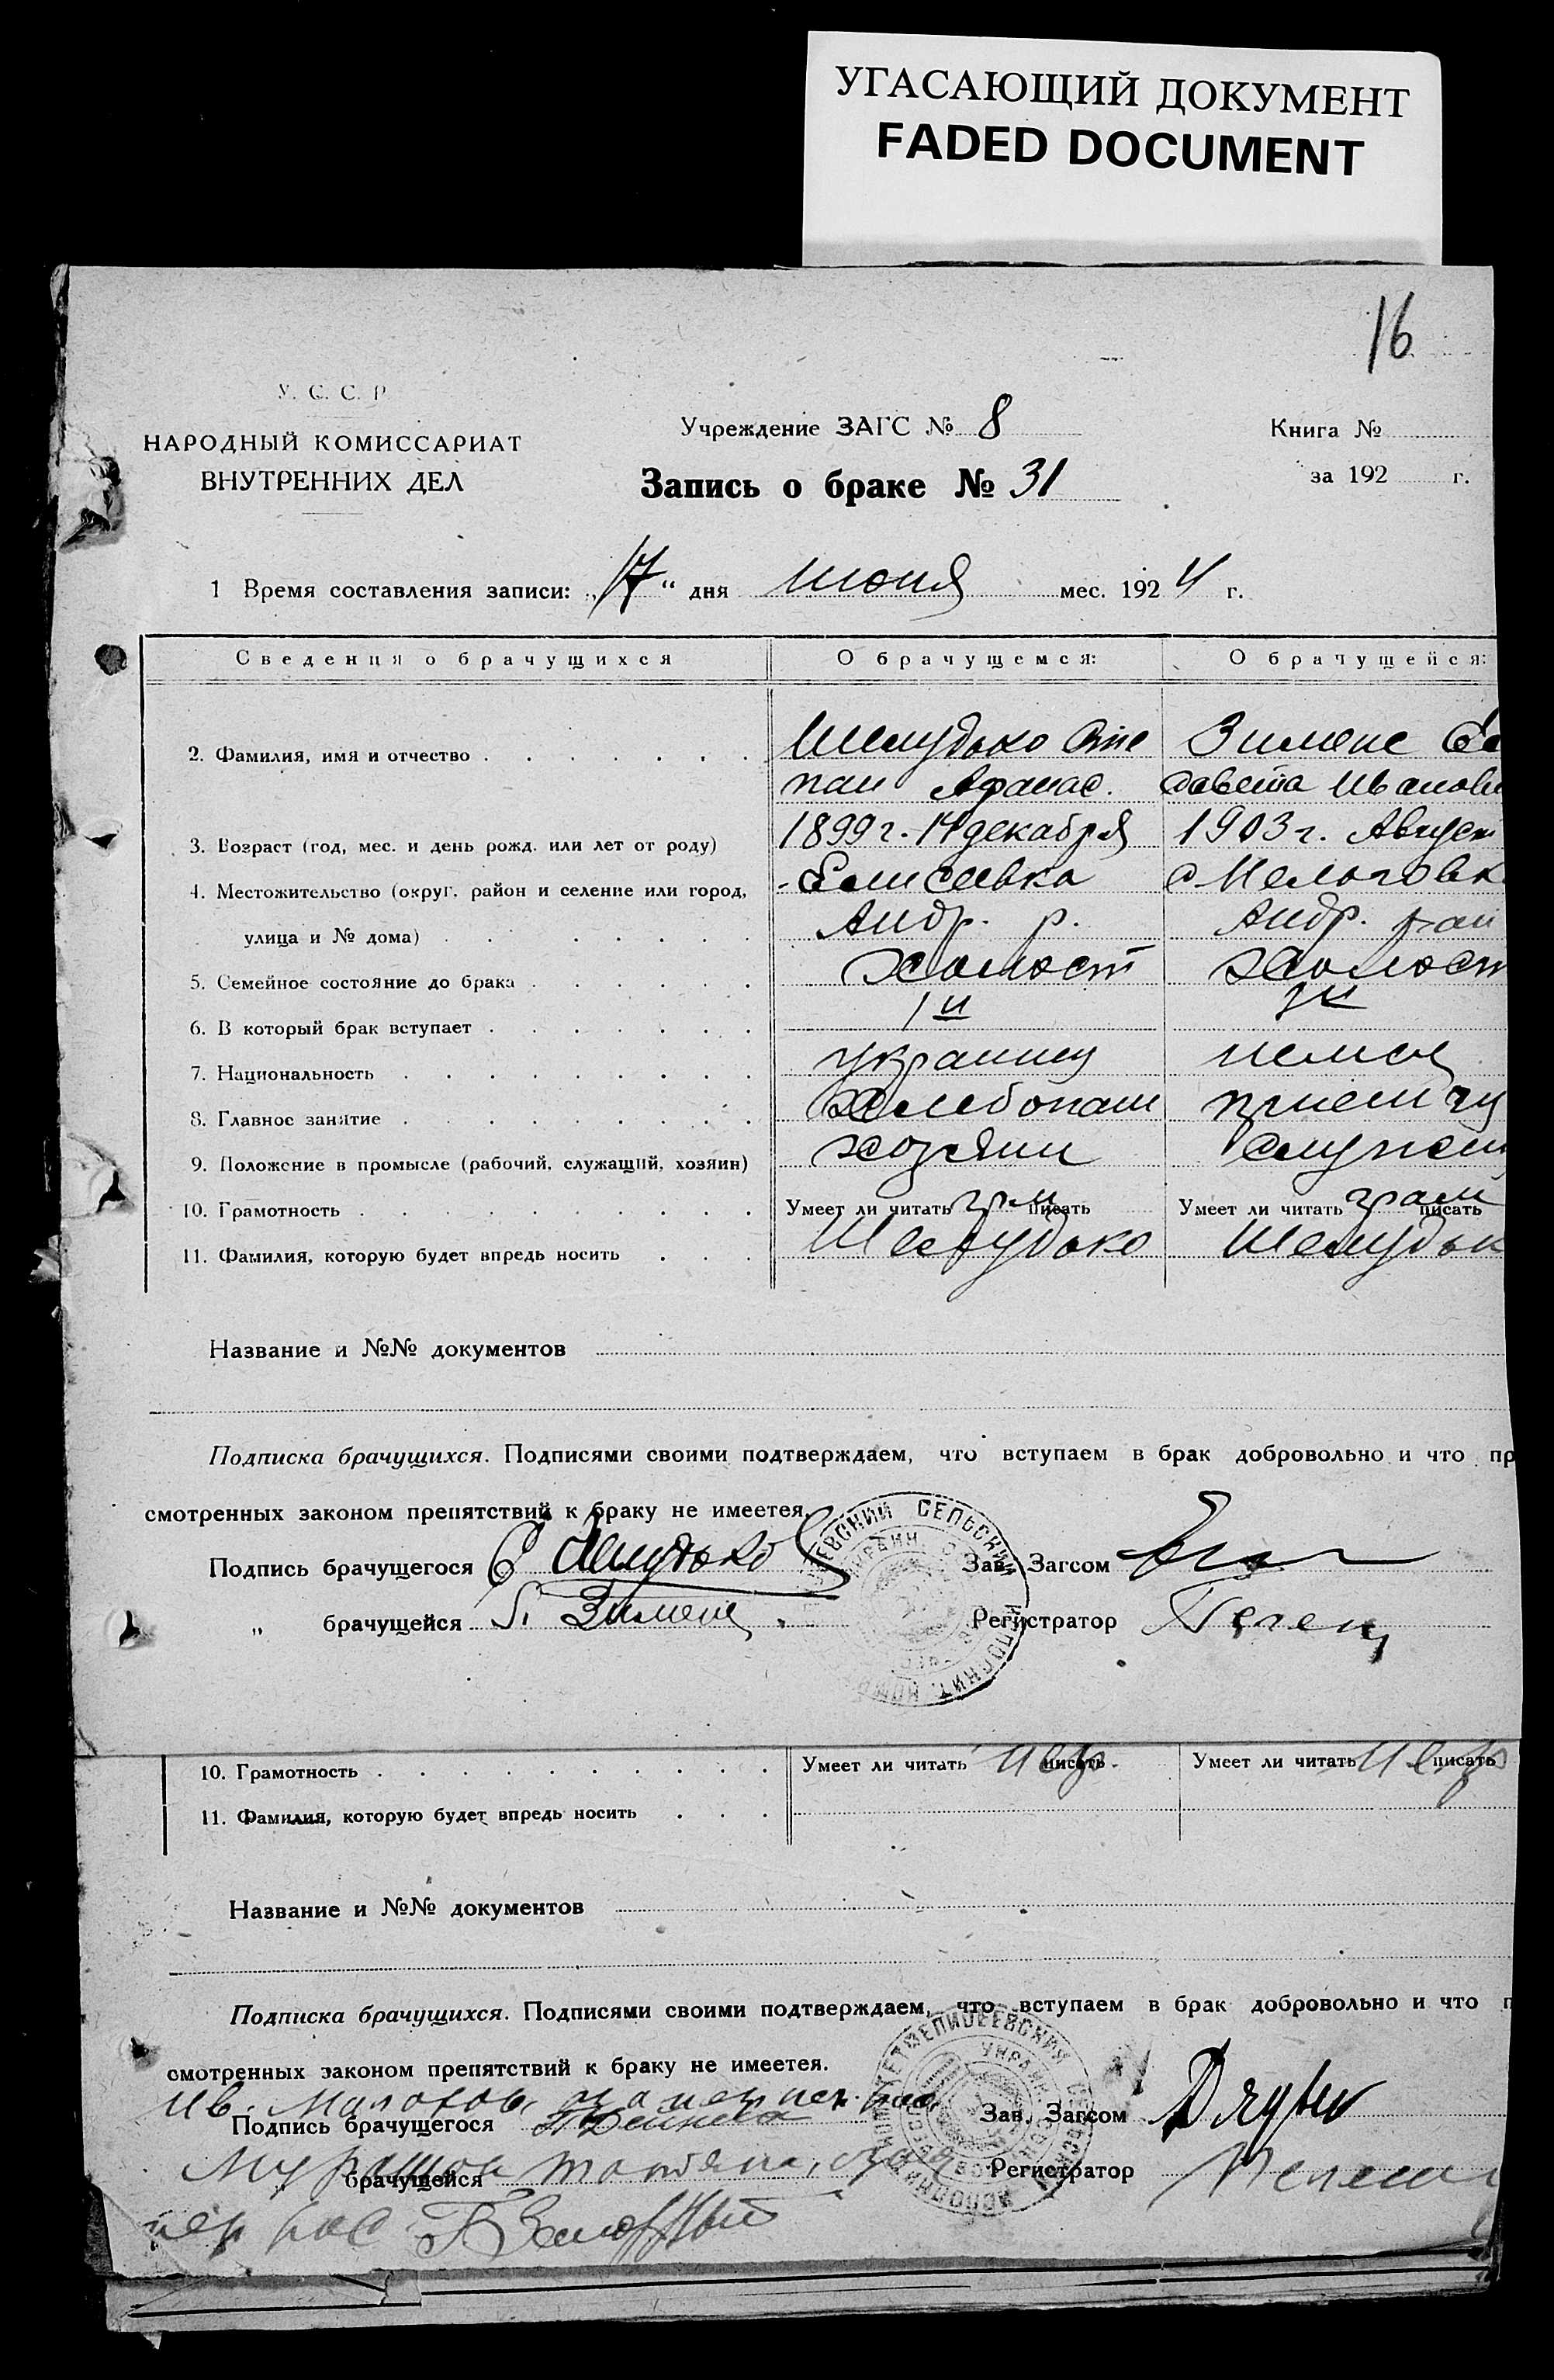 УГАСАЮЩИЙ ДОКУМЕНТ
FADED DOCUMENT
16
У. С. С. Р
НАРОДНЫЙ КОМИССАРИАТ
ВНУТРЕННИХ ДЕЛ
Учреждение ЗАГС № 8
Книга №
Запись о браке № 31
за 192 г.
1 Время составления записи: „17“ дня июня мес. 1924 г.
Сведения о брачущихся О брачущемся: О брачущейся:
2. Фамилия, имя и отчество Шелудько Сте Зименс
пан Афанас. Иванов
3. Возраст (год, мес. и день рожд. или лет от роду) 1899 г. 14 декабря 1903 г. Август
4. Местожительство (округ, район и селение или город, Елисеевка
улица и № дома) Андр. р. Андр. рай
5. Семейное состояние до брака холост холост
6. В который брак вступает 1й
7. Национальность украинец немец
8. Главное занятие Хлебопаш
9. Положение в промысле (рабочий, служащий, хозяин) хозяин служащ
10. Грамотность Умеет ли читать грам писать Умеет ли читать грам писать
11. Фамилия, которую будет впредь носить Шелудько Шелудьк
Название и №№ документов
Подписка брачущихся. Подписями своими подтверждаем, что вступаем в брак добровольно и что пр
смотренных законом препятствий к браку не имеетея.
Подпись брачущегося С Шелудько Зав. Загсом
„ брачущейся Зименс Регистратор
10. Грамотность Умеет ли читать негр. писать Умеет ли читать негр писать
11. Фамилия, которую будет впредь носить
Название и №№ документов
Подписка брачущихся. Подписями своими подтверждаем, что вступаем в брак добровольно и что п
смотренных законом препятствий к браку не имеетея.
Ив.
Подпись брачущегося Зав. Загсом
брачущейся Регистратор